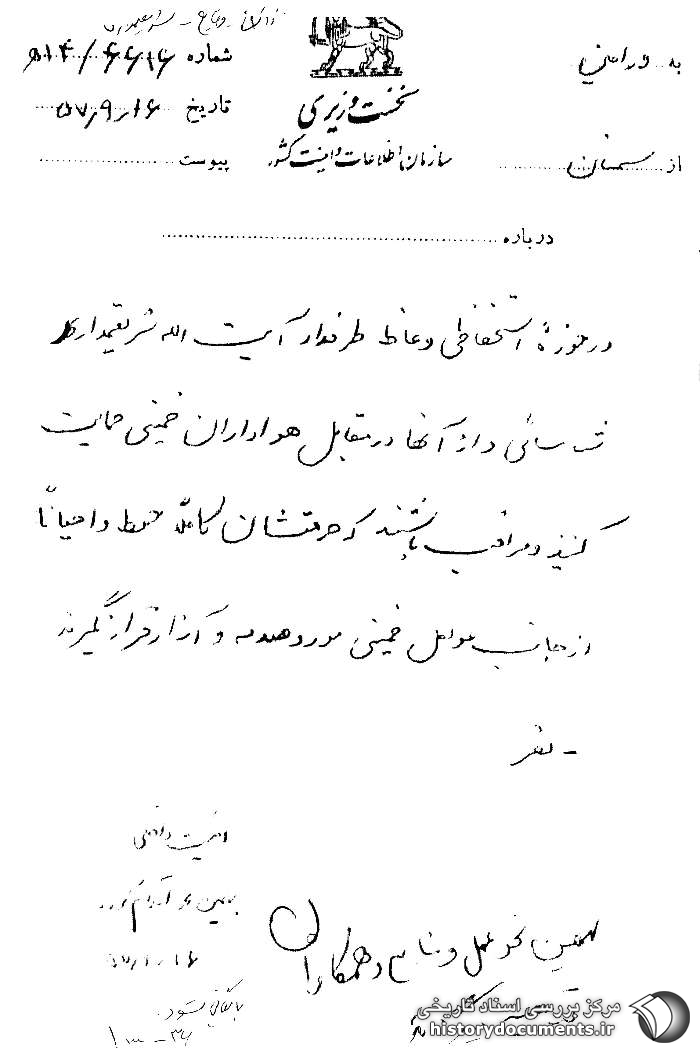 به ورامین
شماره ۶۶۱۶/
نخست وزیری
تاریخ ۵۷٫۹٫۱۶
سازمان اطلاعات و امنیت کشور
از سمنان
پیوست
درباره
در حوزه استحفاظی وعاظ طرفدار آیت الله شریعتمداری
شناسائی و از آنها در مقابل هواداران خمینی حمایت
کنید و مراقب باشند که حرمتشان کاملاً حفظ و احیاناً
از جانب عوامل خمینی مورد صدمه و آزار قرار نگیرند
امنیت داخلی
بهمین نحو عمل و نتایج و همکاران
بهمین نحو اقدام
بایگانی شود
مرکز بررسی اسناد تاریخی
historydocuments.ir